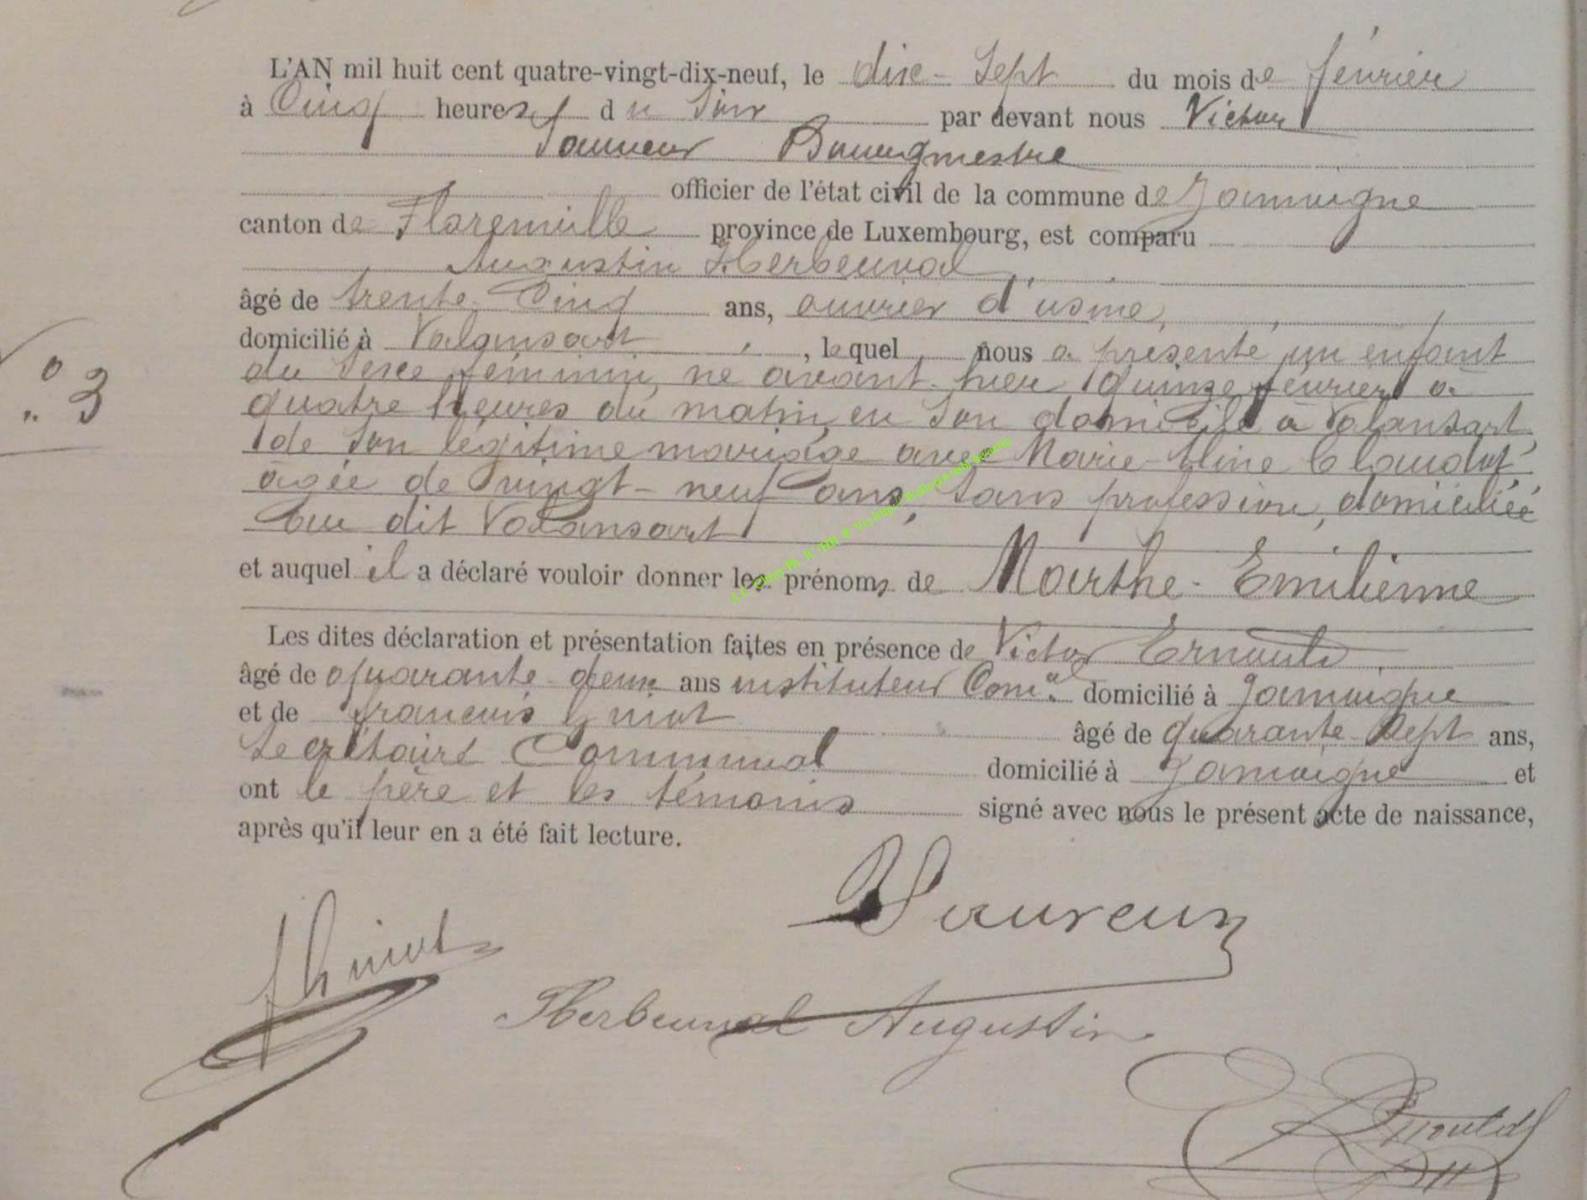 L'AN mil huit cent quatre-vingt-dix-neuf, le dix-Sept du mois de février
à Cinq heures du Soir par devant nous Victor
Sauveur Bourgmestre
officier de l'état civil de la commune de Jamoigne
canton de Florenville province de Luxembourg, est comparu
Augustin Herbeuval,
âgé de trente-Cinq ans, ouvrier d'usine,
domicilié à Valansart, lequel nous a présenté un enfant
du Sexe féminin, né avant-hier quinze février à
quatre heures du matin, en Son domicile à Valansart,
de Son légitime mariage avec Marie-Aline
agée de vingt-neuf ans, Sans profession, domiciliée
au dit Valansart
et auquel il a déclaré vouloir donner les prénoms de Marthe-Emilienne
Les dites déclaration et présentation faites en présence de Victor
âgé de quarante-deux ans instituteur Comal domicilié à Jamoigne
et de françois âgé de quarante-Sept ans,
Secrétaire Communal domicilié à Jamoigne et
ont le père et les témoins signé avec nous le présent acte de naissance,
après qu'il leur en a été fait lecture.
N° 3
Sauveur
Herbeuval Augustin